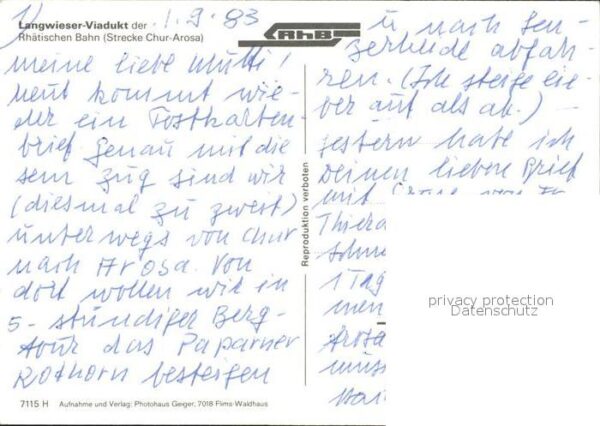 1)
Langwieser-Viadukt der
Rhätischen Bahn (Strecke Chur-Arosa)
1.9.83
RhB
meine liebe Mutti!
heut kommt wie-
der ein Postkarten-
brief Genau mit die
sem Zug sind wir
(diesmal zu zweit)
unterwegs von Chur
nach Arosa. Von
dort wollen wir in
5-stündiger Berg-
tour das Paparner
Rothorn besteigen
Reproduktion verboten
u nach
abfah-
ren. (Ich steige lie-
ber auf als ab.) –
gestern habe ich
Deinen lieben Brief
mit
Thera
1 Tag
men
Arosa
muss
privacy protection
Datenschutz
7115 H Aufnahme und Verlag: Photohaus Geiger, 7018 Flims-Waldhaus